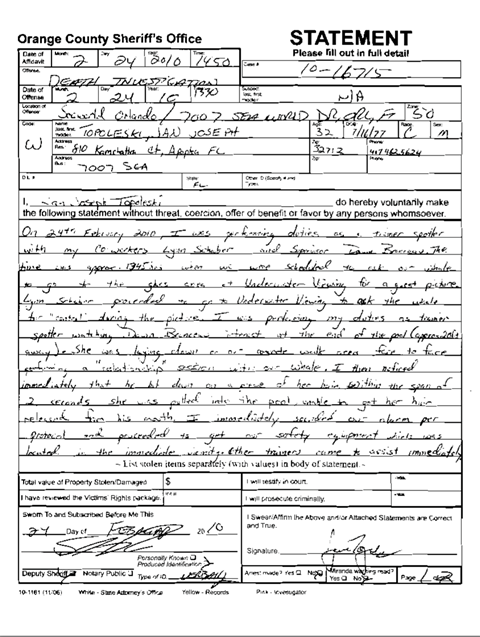 Orange County Sheriff's Office
STATEMENT
Please fill out in full detail
Date of Affidavit Month 2 Day 24 Year 2010 Time 1450
Case # 10-16715
Offense DEATH INVESTIGATION
Date of Offense 2 24 10 1330
Suspect Last, first, middle N/A
Location of Offense Seaworld Orlando / 7007 SEA WORLD DR, Orl, Fl Zone 50
Code W Name Last, first, middle TOPOLESKI, IAN JOSEPH Age 32 Race C Sex M
Address Res: 810 Kamchatka Ct, Apopka FL Zip 32712 Phone
Address Bus: 7007 SEA Zip Phone
D.L.# State FL
I, Ian Joseph Topoleski do hereby voluntarily make
the following statement without threat, coercion, offer of benefit or favor by any persons whomsoever.
On 24th February 2010, I was performing duties as a trainer spotter
with my coworkers Lynn Schaber and Supervisor Dawn Brancheau. The
time was approx. 1345hrs when we were scheduled to ask our whale
to go to the glass area at Underwater Viewing for a guest picture.
Lynn Schaber proceeded to go to Underwater Viewing to ask the whale
to "control" during the picture. I was performing my duties as trainer
spotter watching Dawn Brancheau interact at the end of the pool
away). She was laying down on our walk area face to face
performing a "relationship" session with our whale. I then noticed
immediately that he bit down on a piece of her hair. Within the span of
2 seconds she was pulled into the pool unable to get her hair
released from his mouth. I immediately sounded our alarm per
protocol and proceeded to get our safety equipment which was
located in the immediate vicinity. Other trainers came to assist immediately
– List stolen items separately (with values) in body of statement –
Total value of Property Stolen/Damaged $
I will testify in court.
I have reviewed the Victims' Rights package.
I will prosecute criminally.
Sworn To and Subscribed Before Me This
24 Day of February 2010
I Swear/Affirm the Above and/or Attached Statements are Correct and True.
Signature
Personally Known
Produced Identification
Deputy Sheriff Notary Public Type of ID
Arrest made? Yes No Miranda warning read? Yes No Page 1 of 2
10-1161 (11/06) White - State Attorney's Office Yellow - Records Pink - Investigator